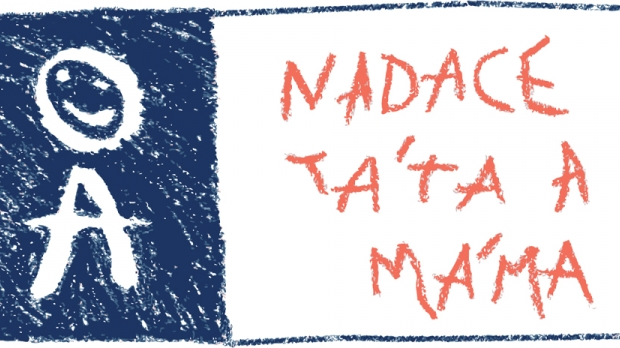 NADACE
TÁTA A
MÁMA